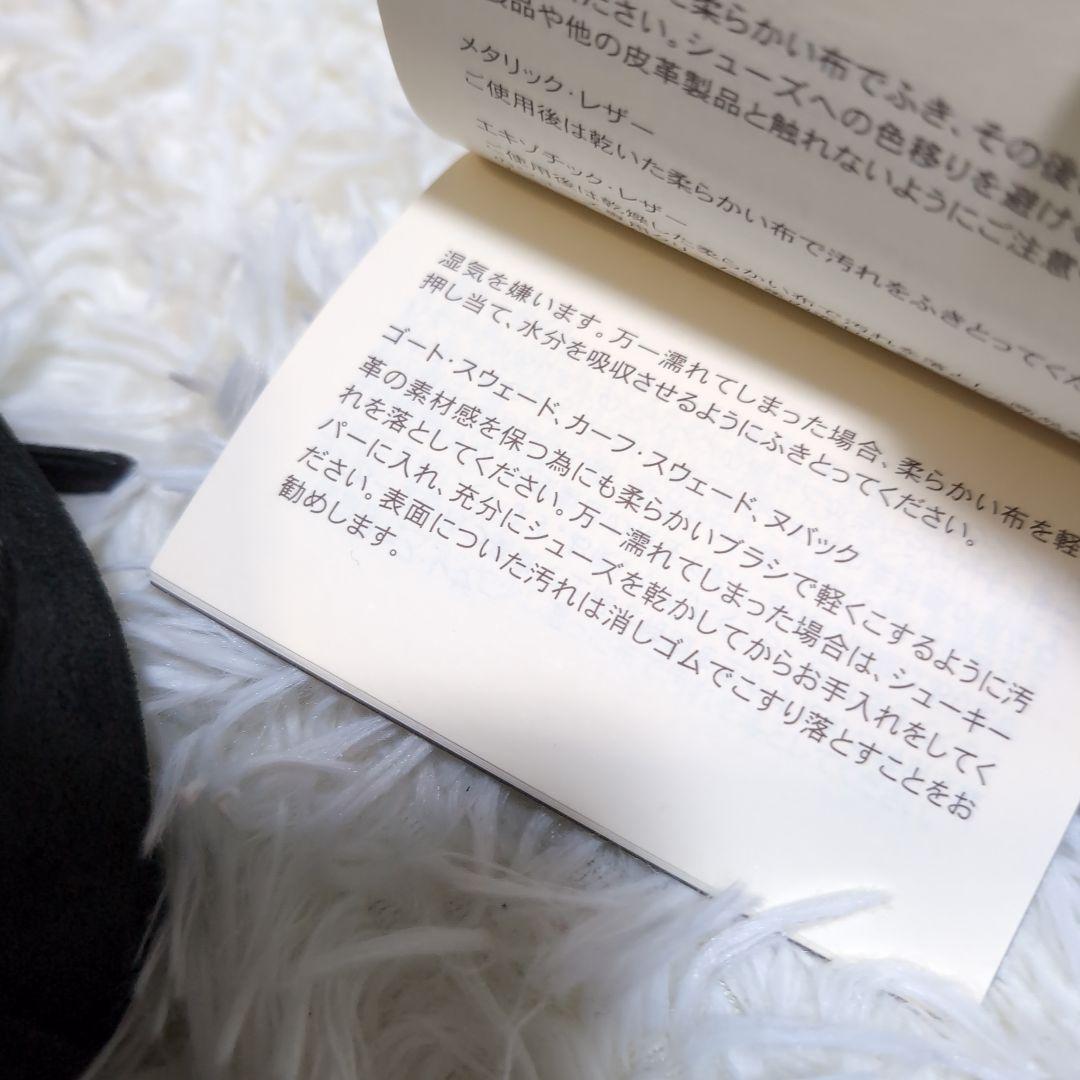 柔らかい布でふき、その後
ださい。シューズへの色移りを避ける
製品や他の皮革製品と触れないようにご注意
メタリック・レザー
ご使用後は乾いた柔らかい布で汚れをふきとってく
エキゾチック・レザー
ご使用後は乾燥した柔らかい布で汚れを
湿気を嫌います。万一濡れてしまった場合、柔らかい布を軽
押し当て、水分を吸収させるようにふきとってください。
ゴート・スウェード、カーフ・スウェード、ヌバック
革の素材感を保つ為にも柔らかいブラシで軽くこするように汚
れを落としてください。万一濡れてしまった場合は、シューキー
パーに入れ、充分にシューズを乾かしてからお手入れをしてく
ださい。表面についた汚れは消しゴムでこすり落とすことをお
勧めします。